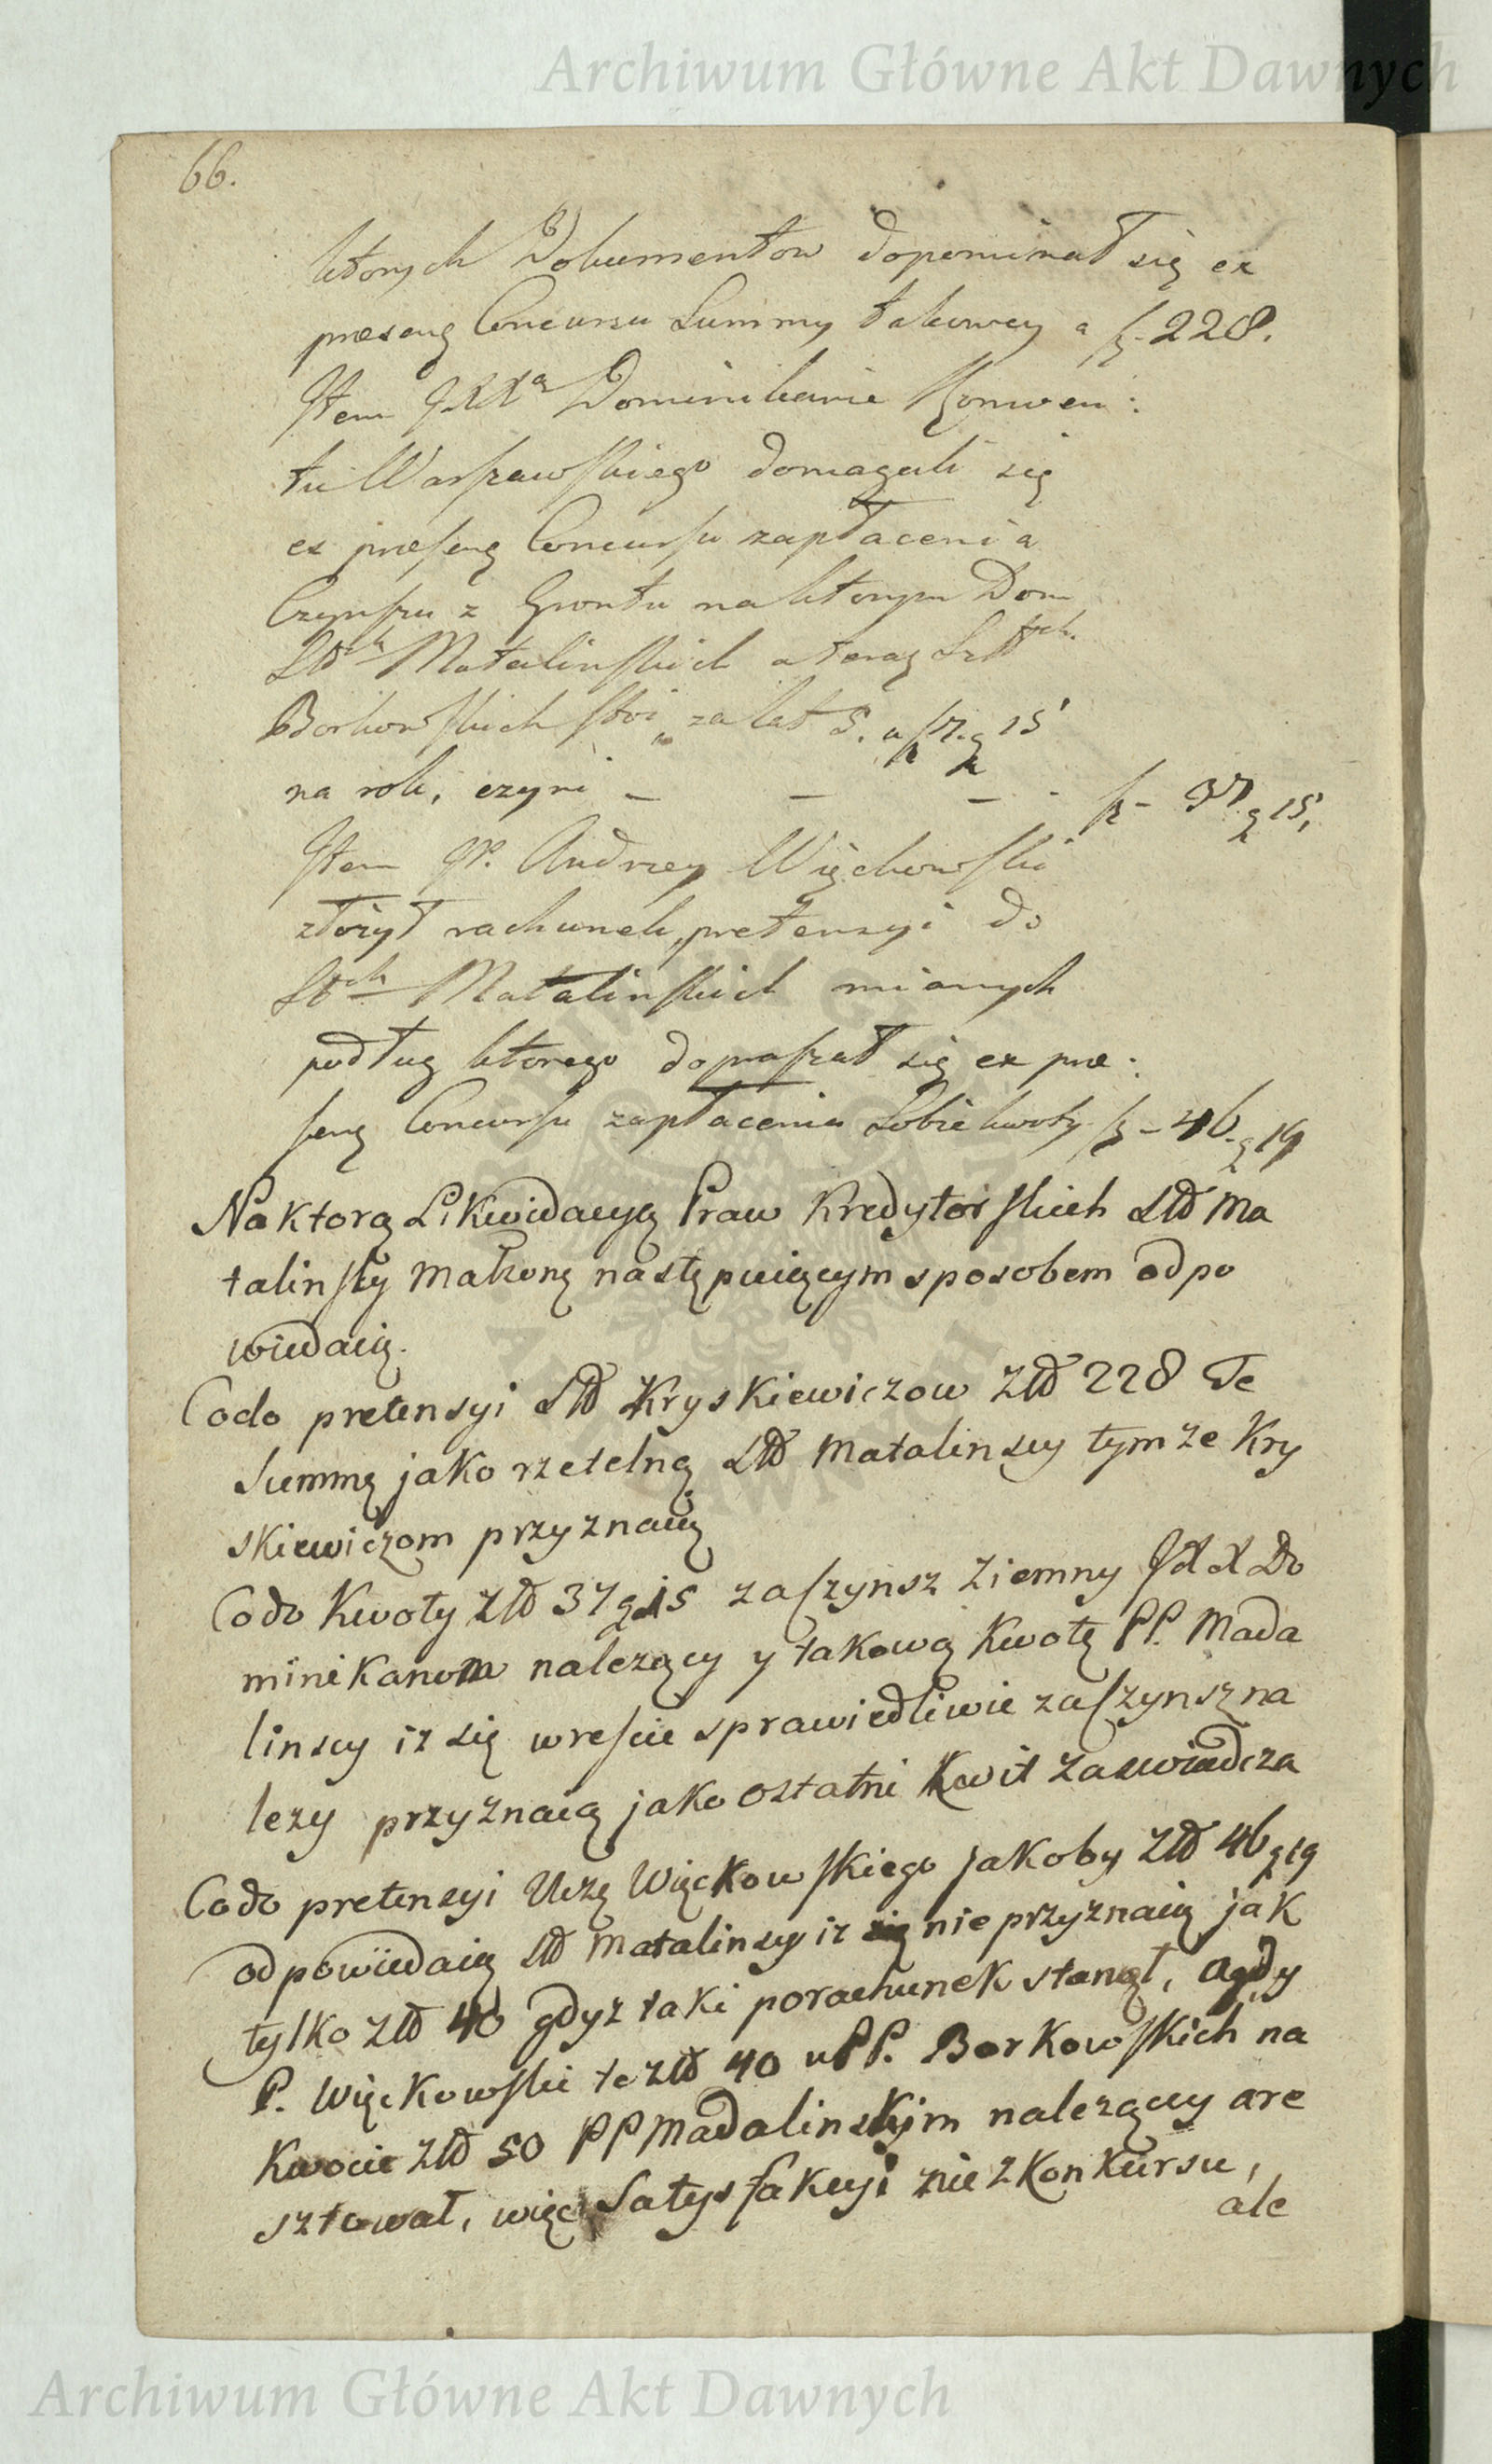 Archiwum Główne Akt Dawnych
66.
ktorych Dokumentow dopominał się ex
præsenę Concursu Summy takowey a f. 228.
Item JXXa Dominikanie Konwen:
tu Warszawskiego domagali się
ex præsenę Concursu zapłacenia
Czynszu z Gruntu na ktorym Dom
Sttch Matalinskich a teraz Sztttch
Borkowskich stoi, za lat 5. a f 7. g 15
na rok, czyni - - - f - 37. g 15,
Item P. Andrzey Więckowski
złożył rachunek, pretensyi do
Sttch Matalinskich mianych
podług ktorego dopraszał się ex præ:
senę Concursu zapłacenia Sobie kwoty f - 46. g 19
Na ktorą Likwidacyą Praw Kredytorskich Stt Ma
talinscy Małzonę następuiącym sposobem odpo
wiedaią.
Co do pretensyi Stt Kryskiewiczow Ztt 228 Te
Summę jako rzetelną Stt Matalinscy tymze Kry
skiewiczom przyznaią
Co do Kwoty Ztt 37 g 15 za czynsz Ziemny JXX Do
minikanom nalezący y takową Kwotę PP. Mada
linscy iz się wreście sprawiedliwie za czynsz na
lezy przyznaią jako ostatni Kwit zaswiadcza
Co do pretensyi Więckowskiego jakoby Ztt 46 g 19
odpowiedaią Stt Matalinscy iz się nie przyznaią jak
tylko Ztt 40 gdyz taki porachunek stanął, a gdy
P. Więckowski te Ztt 40 u PP. Borkowskich na
Kwocie Ztt 50 PP Madalinskim nalezący are
sztował, więc Satysfakcyi nie z Konkursu,
ale
Archiwum Główne Akt Dawnych